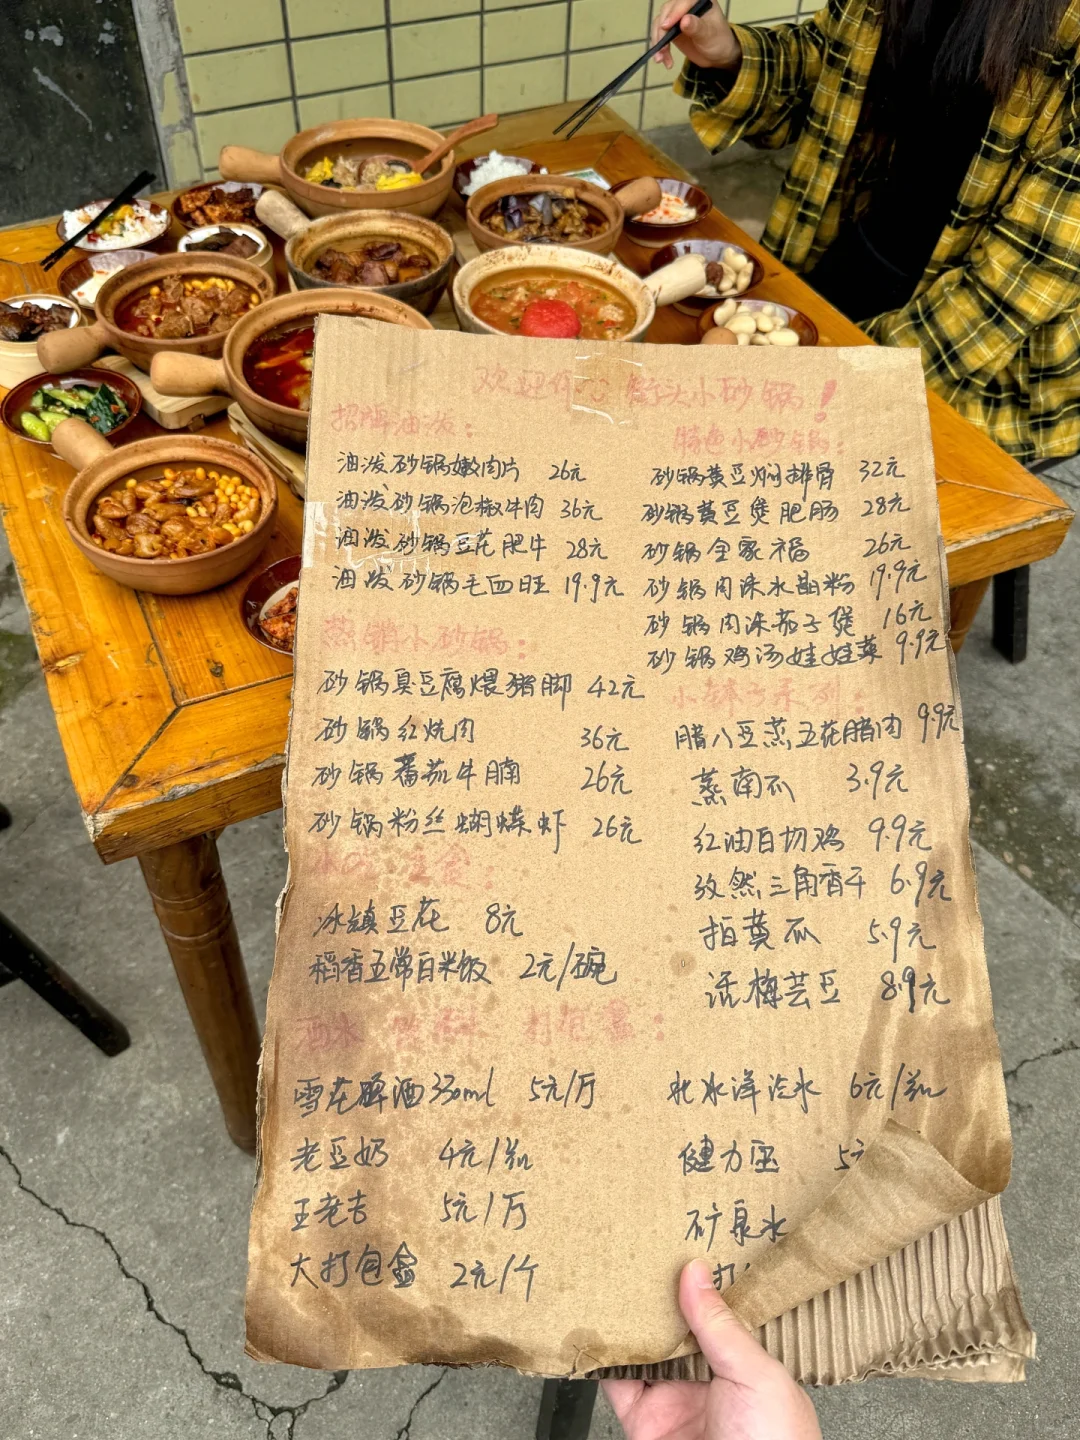 欢迎你 街头小砂锅！
招牌油泼：
油泼砂锅嫩肉片 26元
油泼砂锅泡椒牛肉 36元
油泼砂锅豆花肥牛 28元
油泼砂锅毛血旺 19.9元
小砂锅：
砂锅臭豆腐煨猪脚 42元
砂锅红烧肉 36元
砂锅番茄牛腩 26元
砂锅粉丝蝴蝶虾 26元
小吃 主食：
冰镇豆花 8元
稻香五常白米饭 2元/碗
特色小砂锅：
砂锅黄豆焖排骨 32元
砂锅黄豆煲肥肠 28元
砂锅全家福 26元
砂锅肉沫水晶粉 19.9元
砂锅肉沫茄子煲 16元
砂锅鸡汤娃娃菜 9.9元
小钵子系列：
腊八豆蒸五花腊肉 9.9元
蒸南瓜 3.9元
红油白切鸡 9.9元
孜然三角香干 6.9元
拍黄瓜 5.9元
话梅芸豆 8.9元
酒水 打包盒：
雪花啤酒330ml 5元/厅
老豆奶 4元/瓶
王老吉 5元/厅
大打包盒 2元/个
北冰洋汽水 6元/瓶
健力宝 5元
矿泉水
打